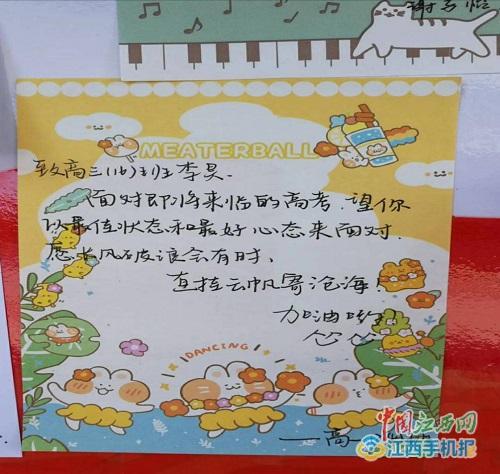 MEATERBALL
致高三(16)班李昊.
面对即将来临的高考,望你
以最佳状态和最好心态来面对.
愿长风破浪会有时,
直挂云帆寄沧海!
加油哟!
DANCING
一高一
中国江西网
江西手机报